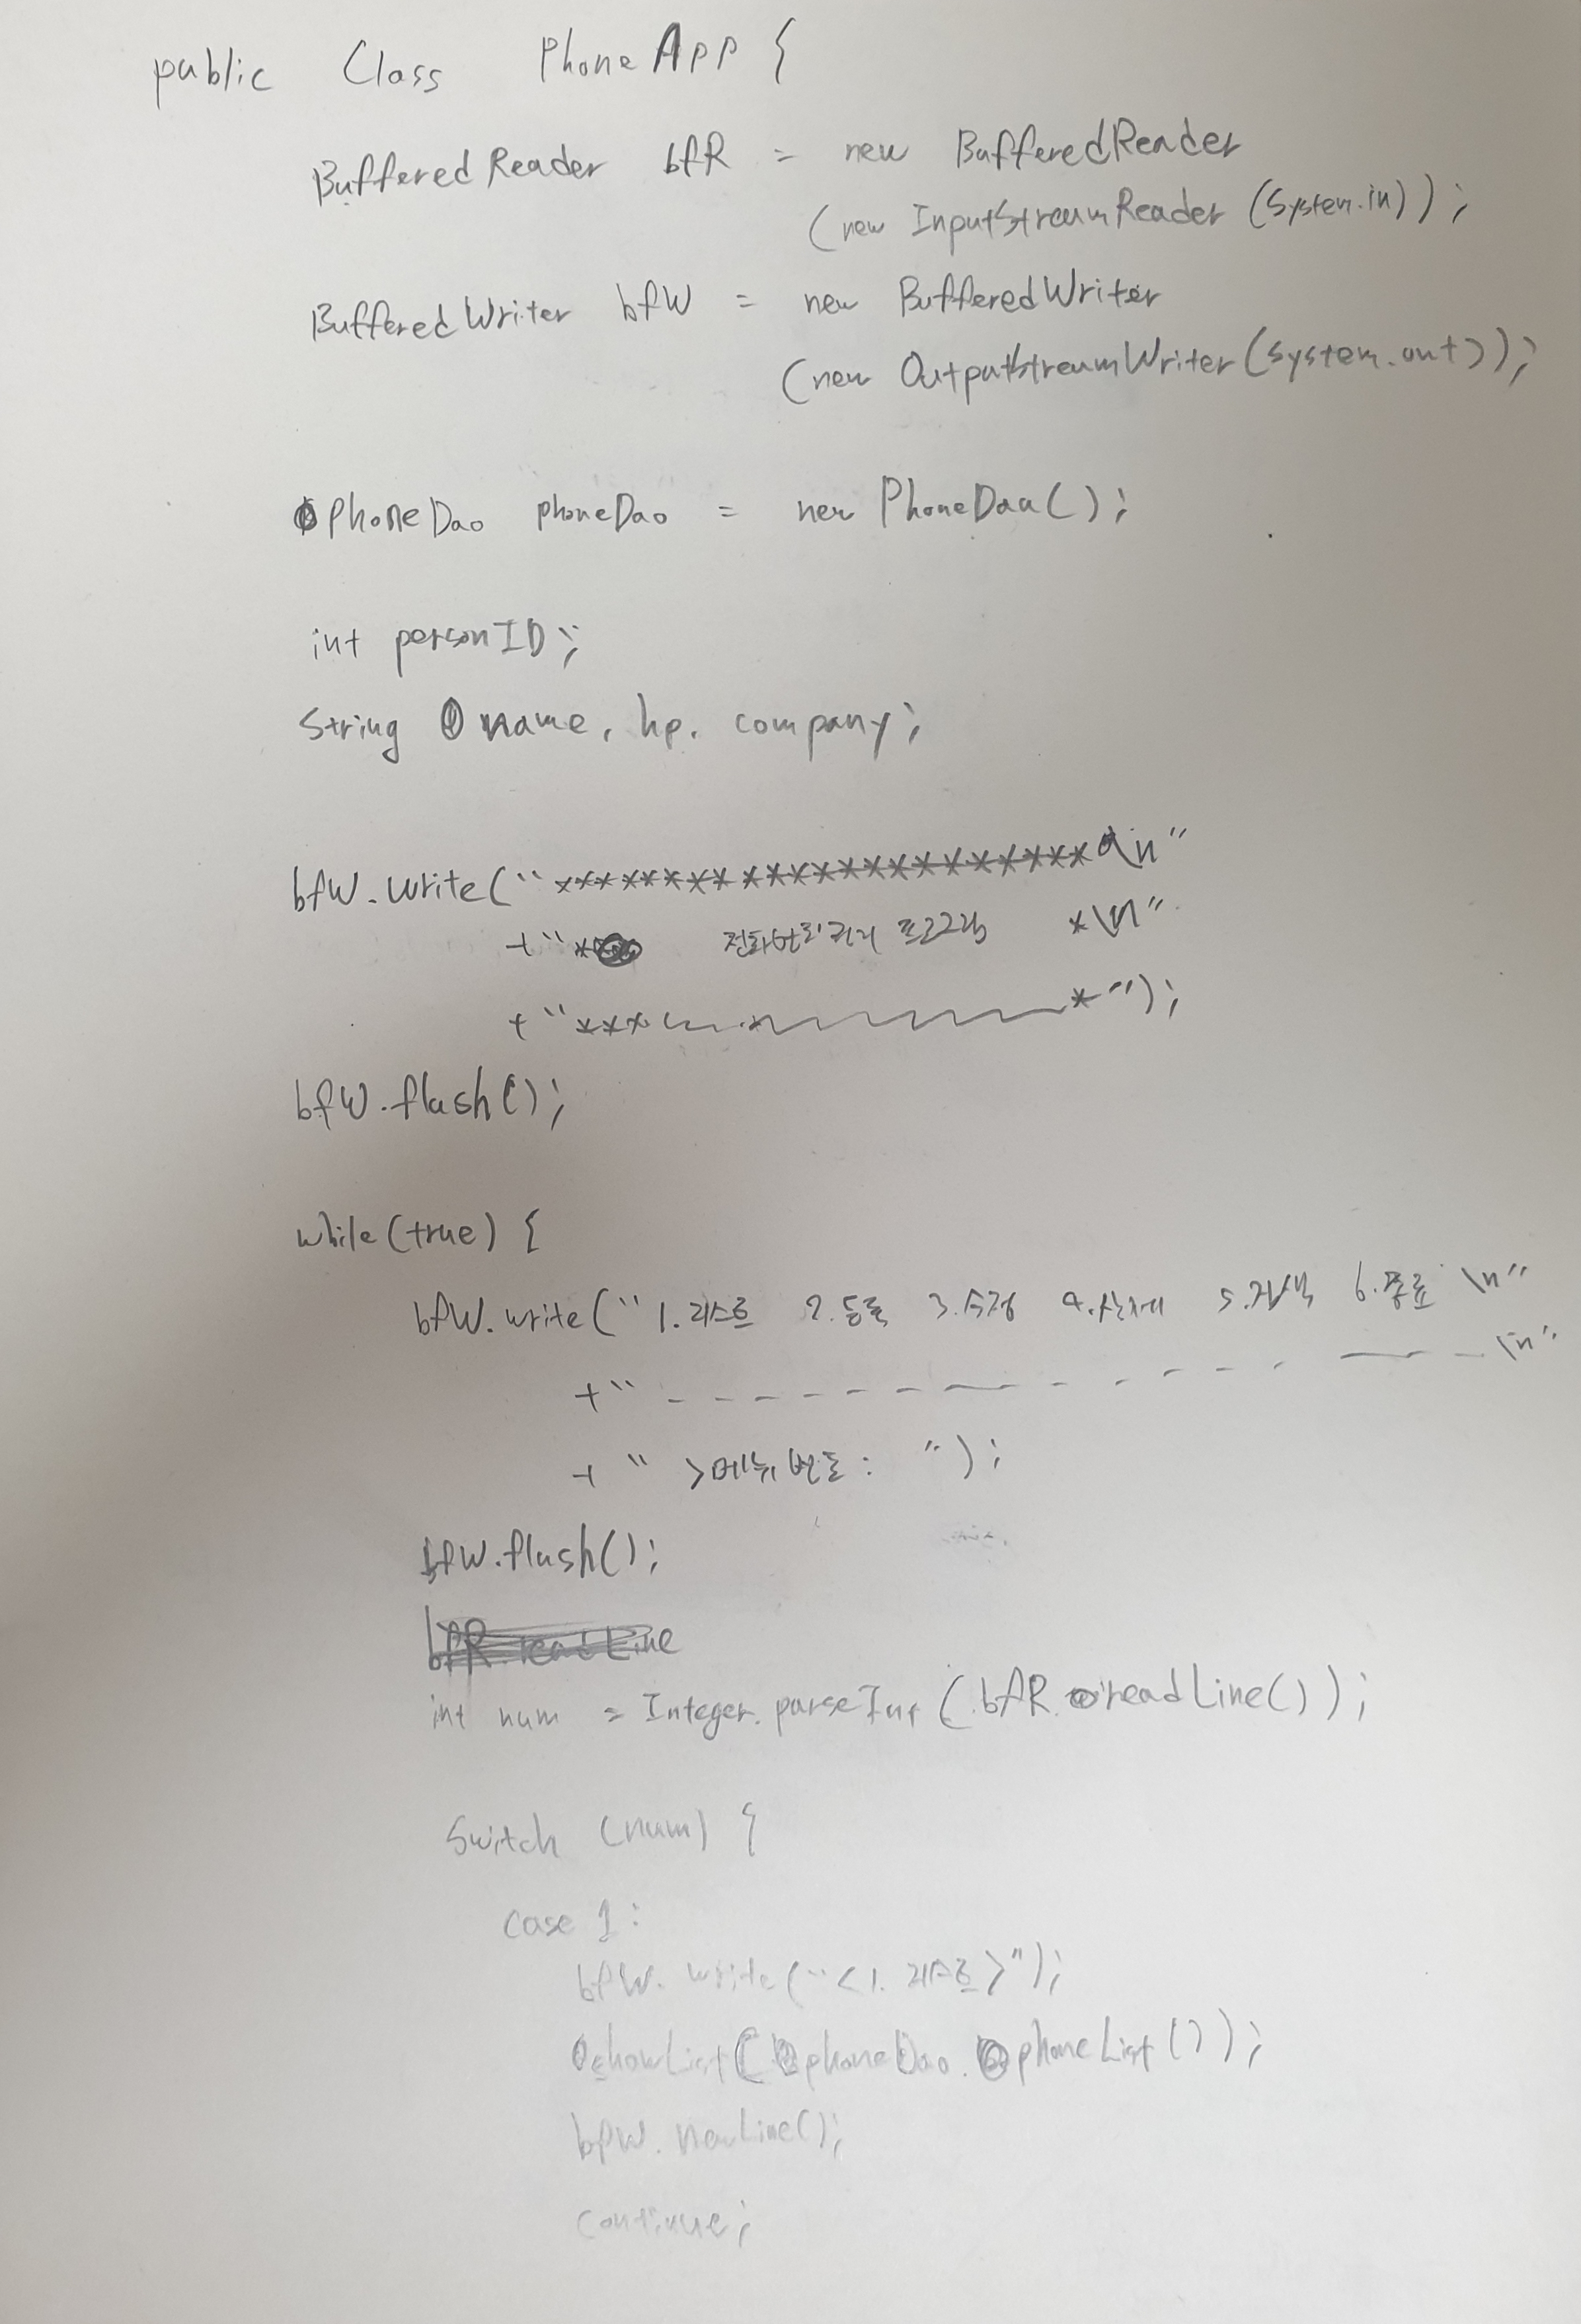 public Class PhoneApp {
BufferedReader bfR = new BufferedReader
(new InputStreamReader (System.in));
BufferedWriter bfW = new BufferedWriter
(new OutputStreamWriter(System.out));
PhoneDao phoneDao = new PhoneDaa();
int personID;
String name, hp, company;
bfW.write("****************************\n"
+"* 전화번호관리 프로그램 *\n"
+"*** *");
bfW.flush();
while(true) {
bfW.write("1.리스트 2.등록 3.수정 4.삭제 5.검색 6.종료 \n"
+"- - - - - - - - - - - - - - - \n"
+" >메뉴번호: ");
bfW.flush();
int num = Integer.parseInt(bfR.readLine());
Switch (num) {
case 1:
bfW.write("<1. 리스트>");
showList(phoneDao.phoneList());
bfW.newLine();
continue;